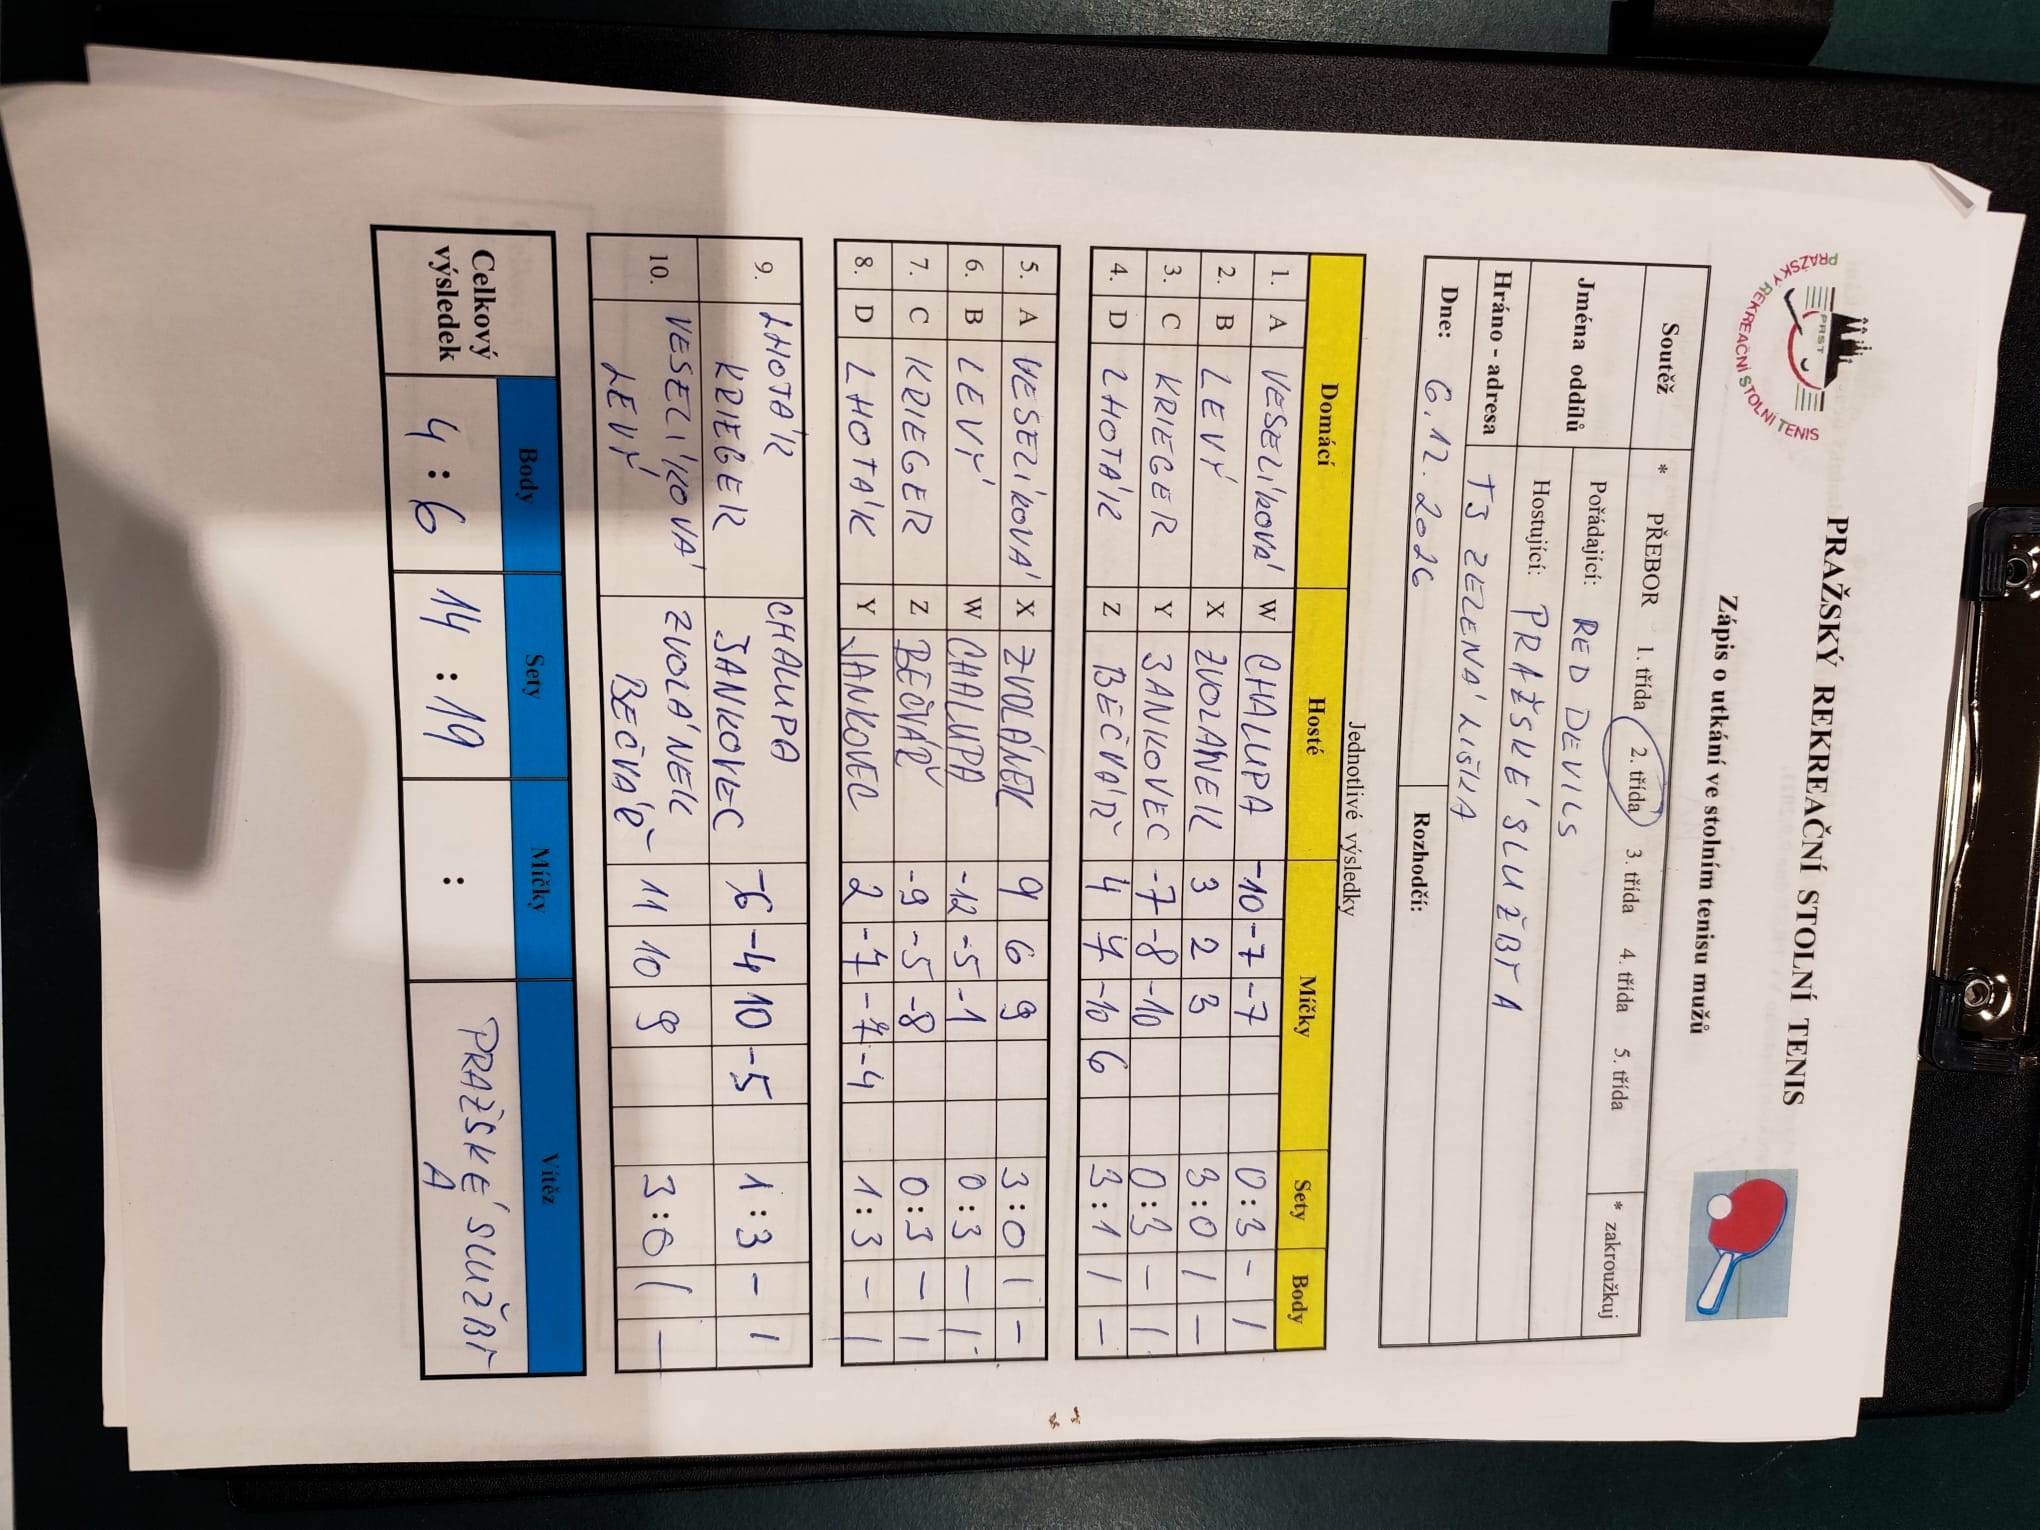 PRAŽSKÝ REKREAČNÍ STOLNÍ TENIS
PRAŽSKÝ REKREAČNÍ STOLNÍ TENIS
PRST
Zápis o utkání ve stolním tenisu mužů
Soutěž * PŘEBOR 1. třída 2. třída 3. třída 4. třída 5. třída * zakroužkuj
Jména oddílů Pořádající: RED DEVILS
Hostující: PRAŽSKÉ SLUŽBY A
Hráno - adresa TJ ZELENÁ LIŠKA
Dne: 6.12.2026 Rozhodčí:
Jednotlivé výsledky
Domácí Hosté Míčky Sety Body
1. A VESELÍKOVÁ W CHALUPA -10 -7 -7 0:3 - 1
2. B LEVÝ X ZVOLÁNEK 3 2 3 3:0 1 -
3. C KRIEGER Y JANKOVEC -7 -8 -10 0:3 - 1
4. D LHOTÁK Z BEČVÁŘ 4 7 -10 6 3:1 1 -
5. A VESELÍKOVÁ X ZVOLÁNEK 9 6 9 3:0 1 -
6. B LEVÝ W CHALUPA -12 -5 -1 0:3 - 1
7. C KRIEGER Z BEČVÁŘ -9 -5 -8 0:3 - 1
8. D LHOTÁK Y JANKOVEC 2 -7 -7 -4 1:3 - 1
9. LHOTÁK CHALUPA
KRIEGER JANKOVEC -6 -4 10 -5 1:3 - 1
10. VESELÍKOVÁ ZVOLÁNEK
LEVÝ BEČVÁŘ 11 10 9 3:0 1 -
Celkový výsledek Body Sety Míčky Vítěz
4:6 14:19 : PRAŽSKÉ SLUŽBY
A